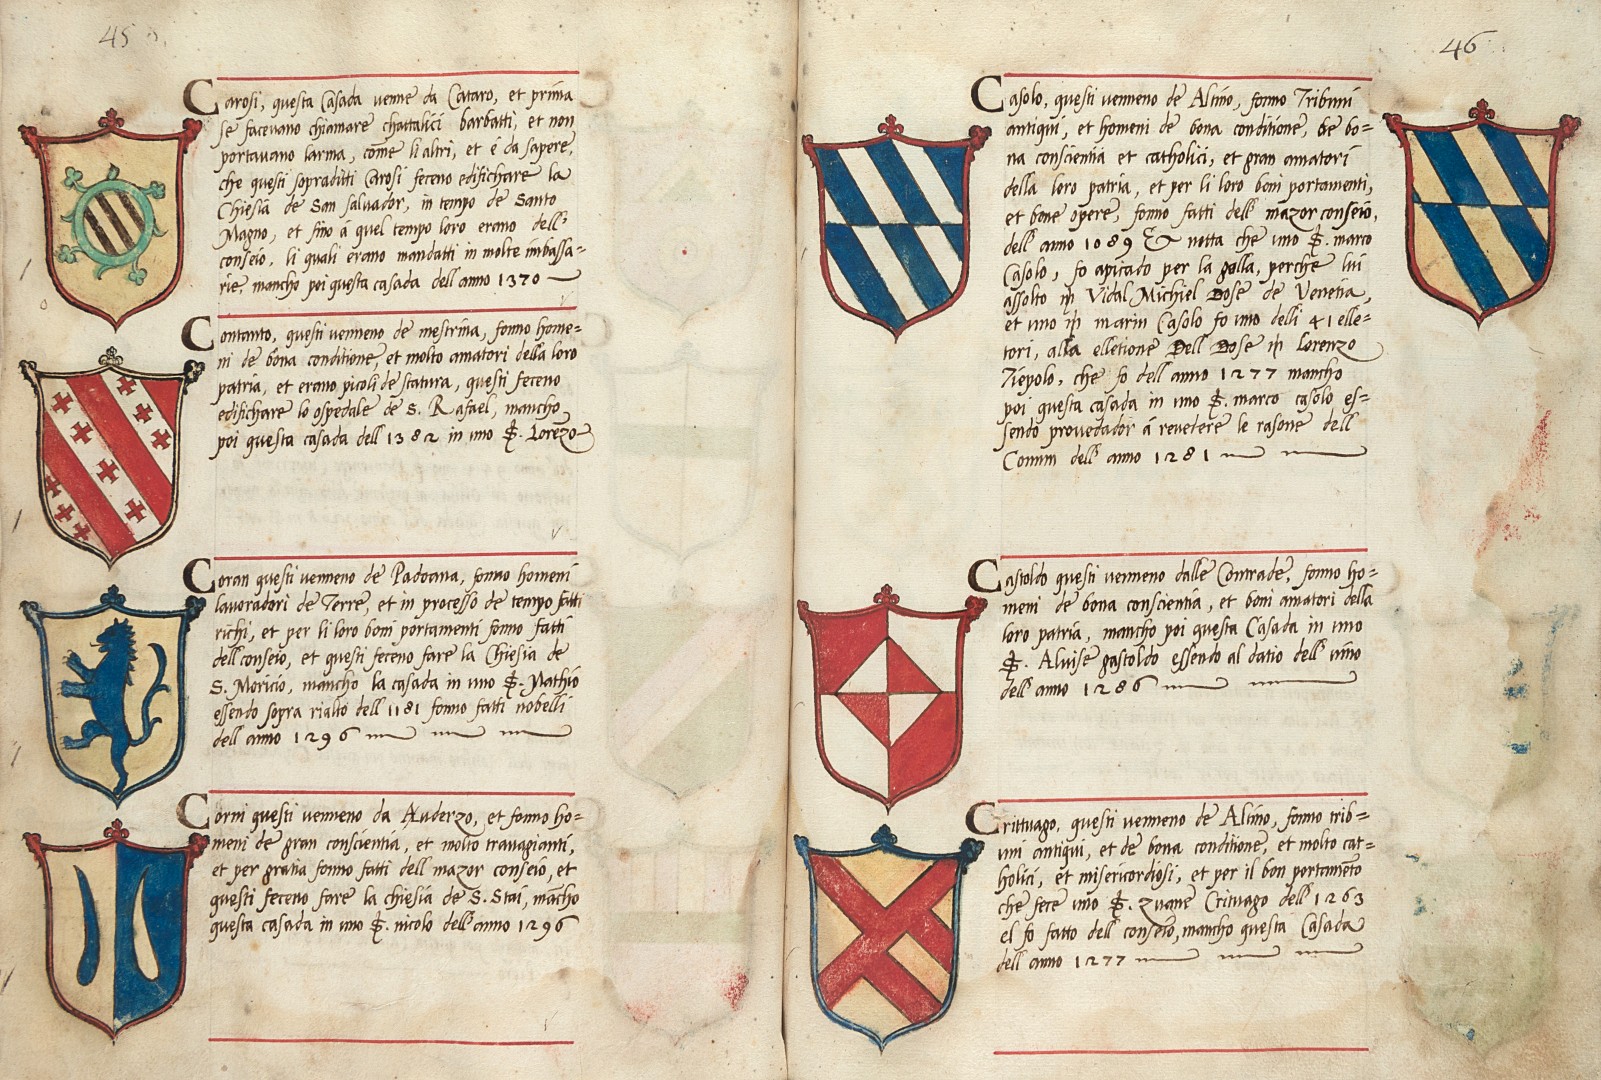 45
Carosi, questa Casada venne da Cataro, et prima
se facevano chiamare chattalici barbatti, et non
portavano larma, come li altri, et è da sapere,
che questi sopraditti Carosi feceno edifichare la
Chiesia de San Salvador, in tempo de Santo
Magno, et fino à quel tempo loro erano dell
conseio, li quali erano mandatti in molte imbassa=
rie, mancho poi questa casada dell anno 1370
Contanto, questi venneno de mestrina, fonno home=
ni de bona conditione, et molto amatori della loro
patria, et erano picoli de statura, questi feceno
edifichare lo ospedale de S. Rafael, mancho
poi questa casada dell 1382 in uno S. Lorenzo
Coran questi venneno de Padoana, fonno homeni
lavoradori de Terre, et in processo de tempo fatti
richi, et per li loro boni portamenti fonno fatti
dell conseio, et questi feceno fare la Chiesia de
S. Moricio, mancho la casada in uno S. Mathio
essendo sopra rialto dell 1181 fonno fatti nobelli
dell anno 1296
Corni questi venneno da Auderzo, et fonno ho=
meni de gran conscientia, et molto travagianti,
et per gratia fonno fatti dell mazor conseio, et
questi feceno fare la chiesia de S. Stai, mancho
questa casada in uno S. nicolo dell anno 1296
46
Casolo, questi venneno de Altino, fonno Tribuni
antiqui, et homeni de bona conditione, de bo=
na conscientia et catholici, et gran amatori
della loro patria, et per li loro boni portamenti,
et bone opere, fonno fatti dell mazor conseio,
dell anno 1089 & notta che uno S. marco
Casolo, fo apicado per la golla, perche lui
assolto Vidal Michiel Dose de Venetia,
et uno marin Casolo fo uno delli 41 elle=
tori, alla elletione Dell Dose Lorenzo
Tiepolo, che fo dell anno 1277 mancho
poi questa casada in uno S. marco casolo es=
sendo provedador à revedere le rasone dell
Comun dell anno 1281
Castoldo questi venneno dalle Contrade, fonno ho=
meni de bona conscientia, et boni amatori della
loro patria, mancho poi questa Casada in uno
S. Alvise gastoldo essendo al datio dell vino
dell anno 1286
Crittvago, questi venneno de Altino, fonno trib=
uni antiqui, et de bona conditione, et molto cat=
holici, et misericordiosi, et per il bon portameto
che fece uno S. zuane Crituago dell 1263
el fo fatto dell conseio, mancho questa Casada
dell anno 1277